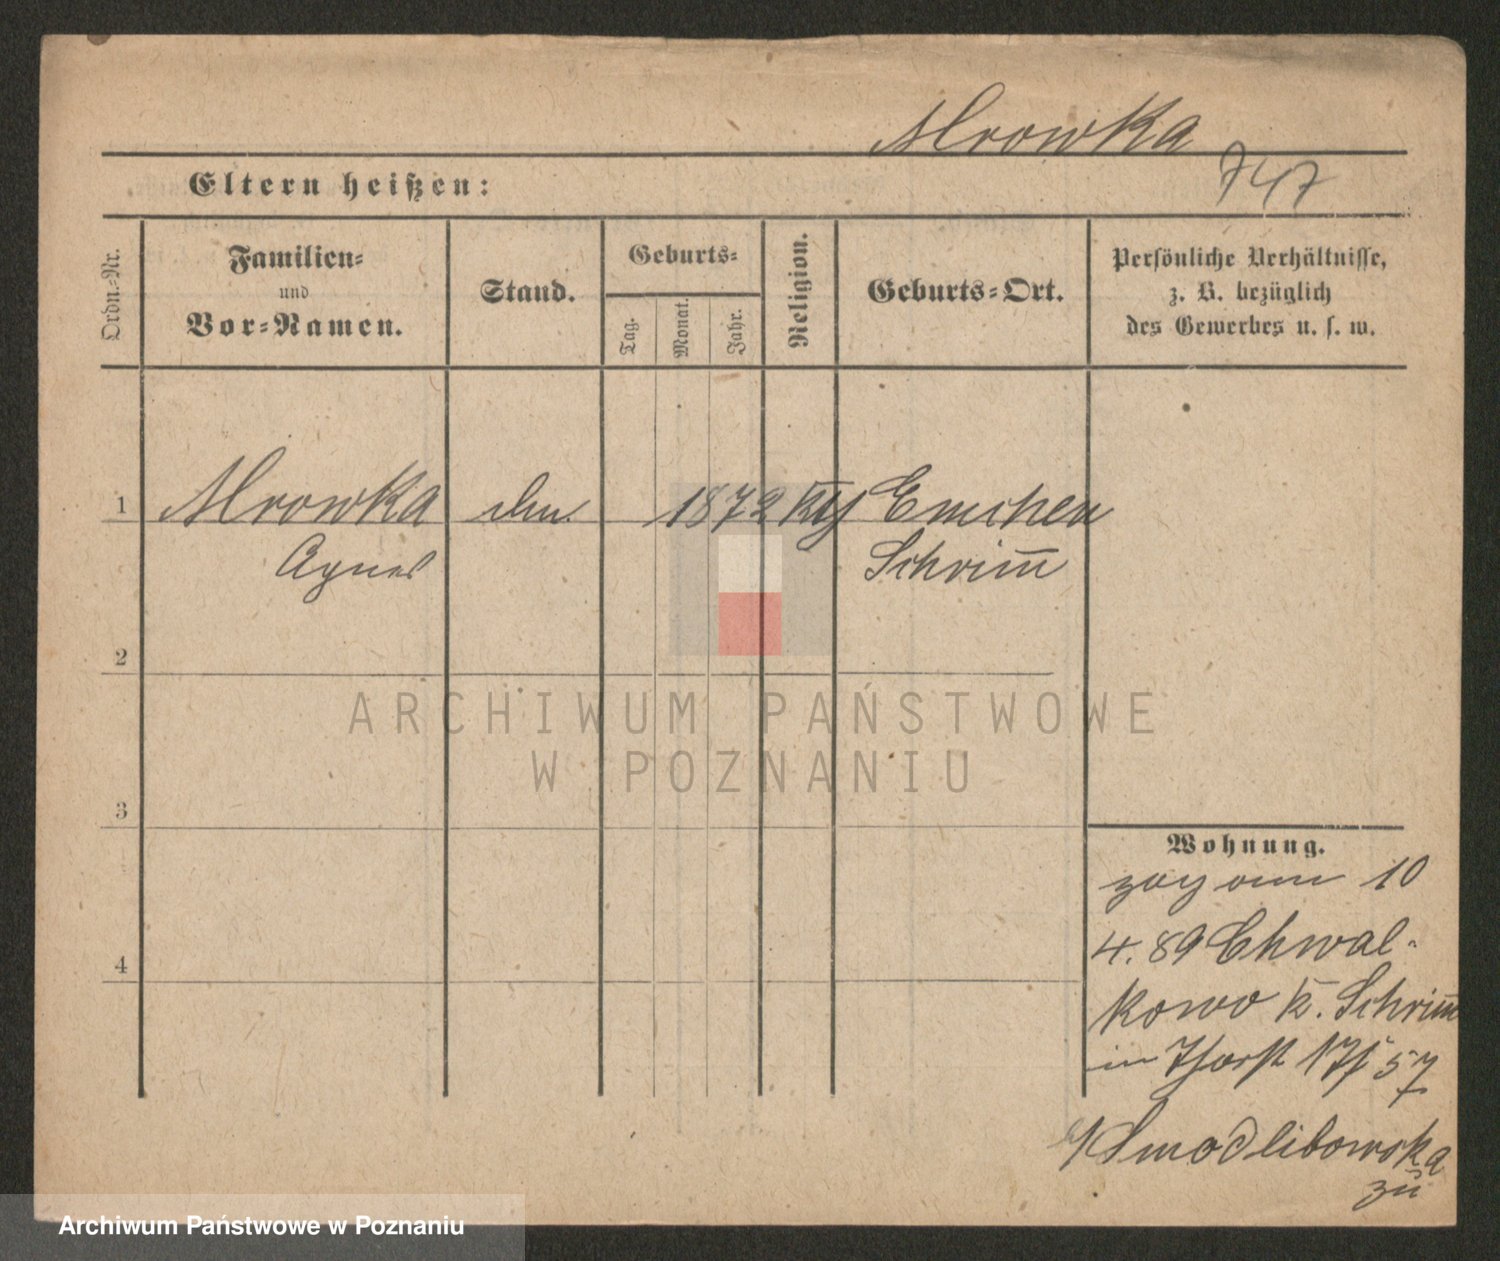 Mrowka
747
Eltern heißen:
Ordn.-Nr.
Familien-
und
Vor-Namen.
Stand.
Geburts-
Tag.
Monat.
Jahr.
Religion.
Geburts-Ort.
Persönliche Verhältnisse,
z. B. bezüglich
des Gewerbes u. s. w.
1 Mrowka 1872
Agnes Schrim̅
2
3
4
ARCHIWUM PAŃSTWOWE
W POZNANIU
Wohnung.
zog 10
4. 89 Chwal-
kowo K. Schrim̅
in 57
Smodlibowska
zu
Archiwum Państwowe w Poznaniu